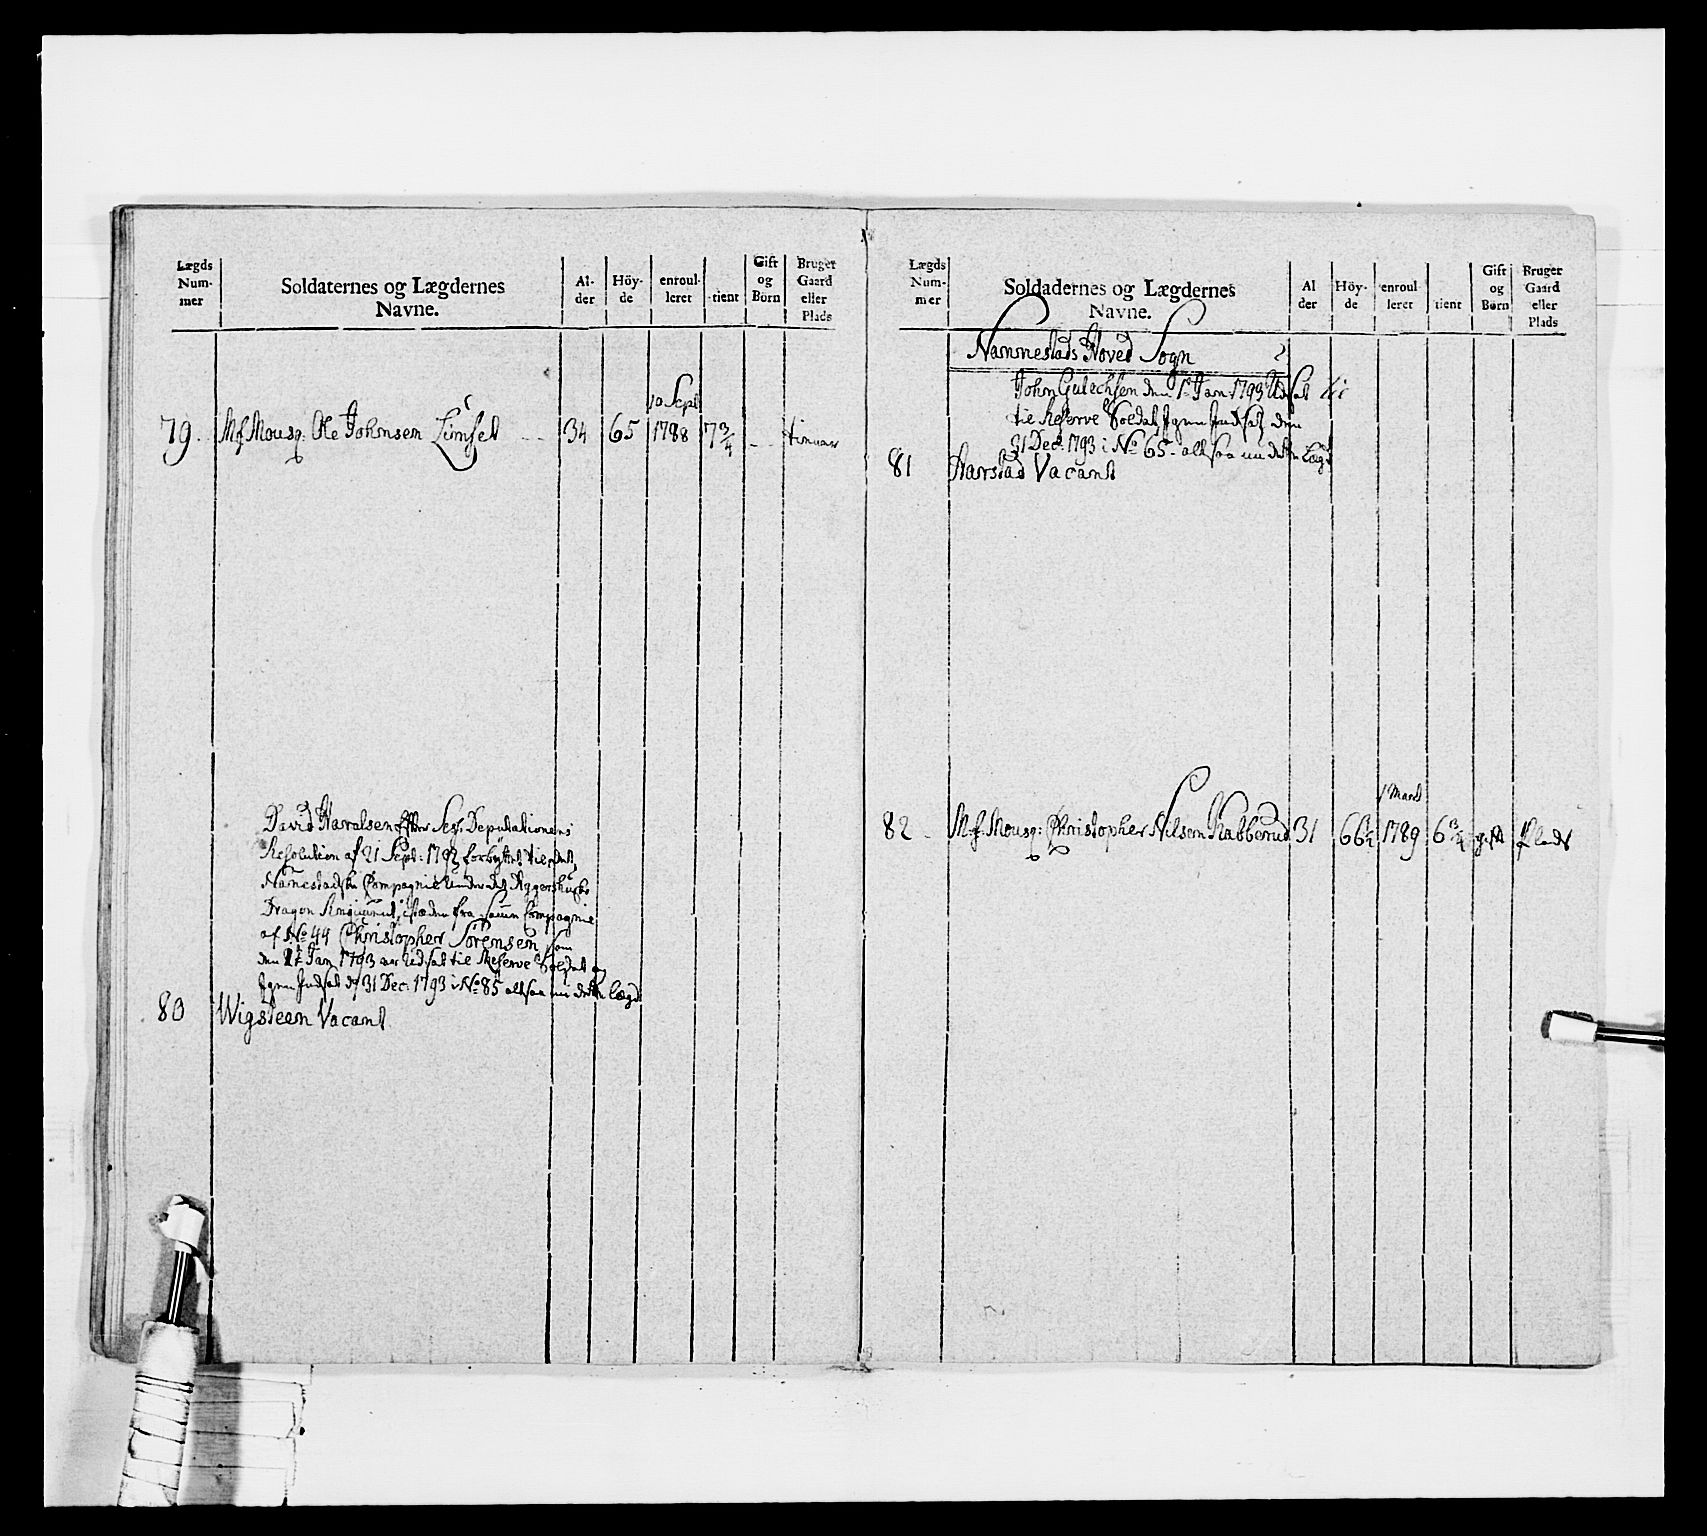 Lægds
Num-
mer
Soldaternes og Lægdernes
Navne.
Al-
der
Höy-
de
enroul-
leret
tient
Gift
og
Börn
Bruger
Gaard
eller
Plads
10 Sept
79. Mf Mousq: Ole Johnsen Limset 34 65 1788 7 3/4
David Haralsen Efter Sess: Deputationens
Resolution af 21 Sept: 1792 forbyttet til det
Compagnie under det Aggershuuske
Dragon Regiment, isteden fra samme Compagnie
af No 44 Christopher Sörensen som
den 1t Jan 1793 er Udsat til Reserve Soldat og
Igien Indsat d 31 Dec: 1793 i No 85 altsaa nu dette Lægd
80 Wigsteen Vacant
Lægds
Num-
mer
Soldadernes og Lægdernes
Navne.
Al
der
Höy-
de
enroul
leret
tient
Gift
og
Børn
Bruger
Gaard
eller
Plads
Nannestads Hoved Sogn
John den 1t Jan 1793 Udsat
til Reserve Soldat, Igien Indsat den
31 Dec: 1793 i No 65 - altsaa nu dette Lægd
81 Harstad Vacant
1 Marts
82 - Mf. Mousq: Christopher Nilsen Rabberud 31 66 1/2 1789 6 3/4 gift Plads